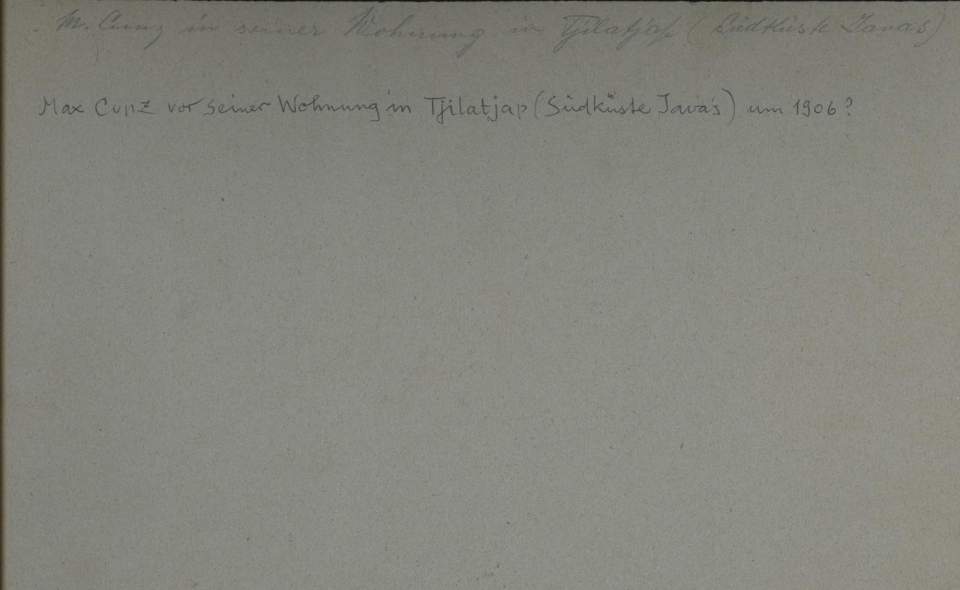 M. Cunz in seiner Wohnung in Tjilatjap (Südküste Javas)
Max Cunz vor seiner Wohnung in Tjilatjap (Südküste Java's) um 1906?